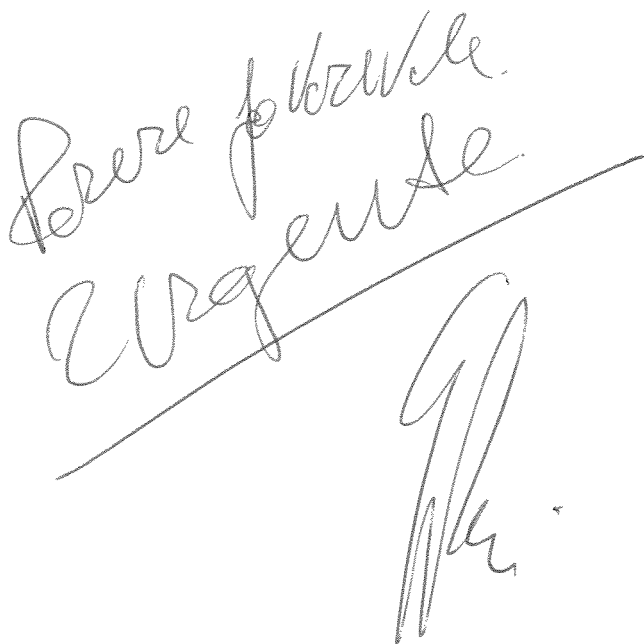 Parere favorevole.
Urgente.